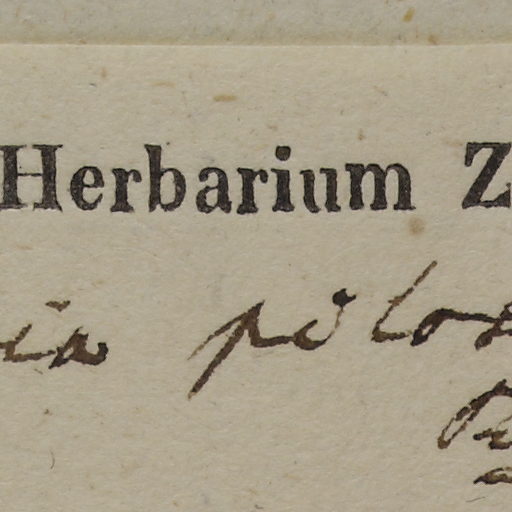 Herbarium Z
ia pilos